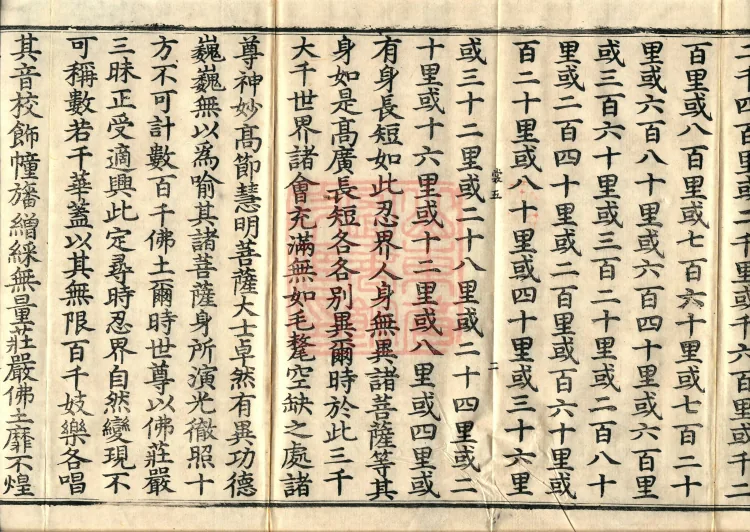 二千四百里或二千里或千六百里或千二
百里或八百里或七百六十里或七百二十
里或六百八十里或六百四十里或六百里
或三百六十里或三百二十里或二百八十
里或二百四十里或二百里或百六十里或
百二十里或八十里或四十里或三十六里
裳五 二
或三十二里或二十八里或二十四里或二
十里或十六里或十二里或八里或四里或
有身長短如此忍界人身無異諸菩薩等其
身如是髙廣長短各各別異爾時於此三千
大千世界諸會充滿無如毛氂空缺之處諸
尊神妙髙節慧明菩薩大士卓然有異功德
巍巍無以爲喻其諸菩薩身所演光徹照十
方不可計數百千佛土爾時世尊以佛莊嚴
三昧正受適興此定尋時忍界自然變現不
可稱數若干華蓋以其無限百千妓樂各唱
其音校飾幢旛繒綵無量莊嚴佛土靡不煌